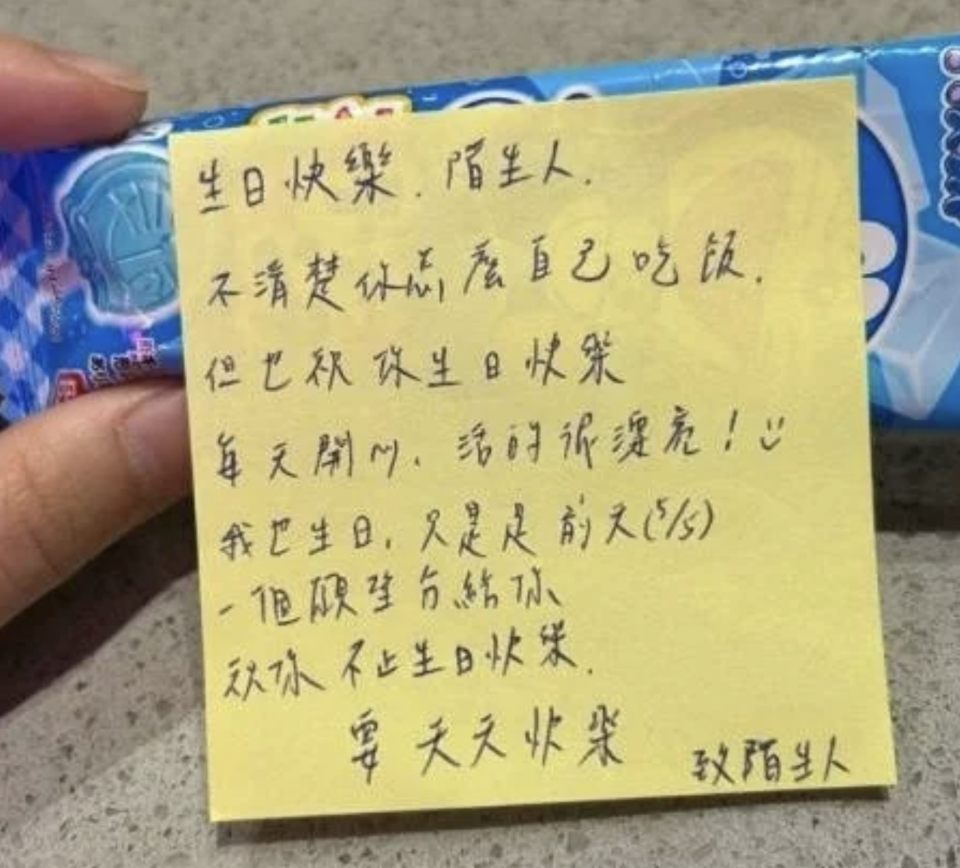 生日快樂.陌生人.
不清楚你怎麼自己吃飯.
但也祝你生日快樂
每天開心、活的很漂亮!
我也生日,只是是前天(5/5)
一個願望分給你
祝你不止生日快樂.
要天天快樂
致陌生人